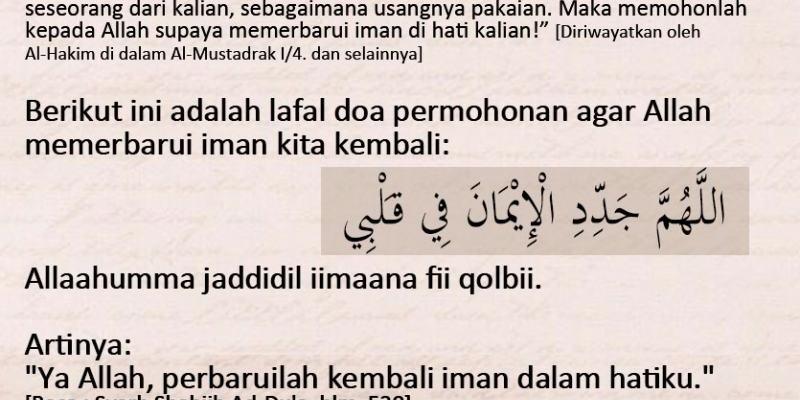 seseorang dari kalian, sebagaimana usangnya pakaian. Maka memohonlah
kepada Allah supaya memerbarui iman di hati kalian!” [Diriwayatkan oleh
Al-Hakim di dalam Al-Mustadrak I/4. dan selainnya]
Berikut ini adalah lafal doa permohonan agar Allah
memerbarui iman kita kembali:
اللَّهُمَّ جَدِّدِ الْإِيْمَانَ فِي قَلْبِي
Allaahumma jaddidil iimaana fii qolbii.
Artinya:
"Ya Allah, perbaruilah kembali iman dalam hatiku."